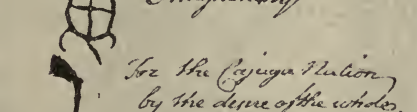 For the Cajuga Nation,
by the desire of the whole.